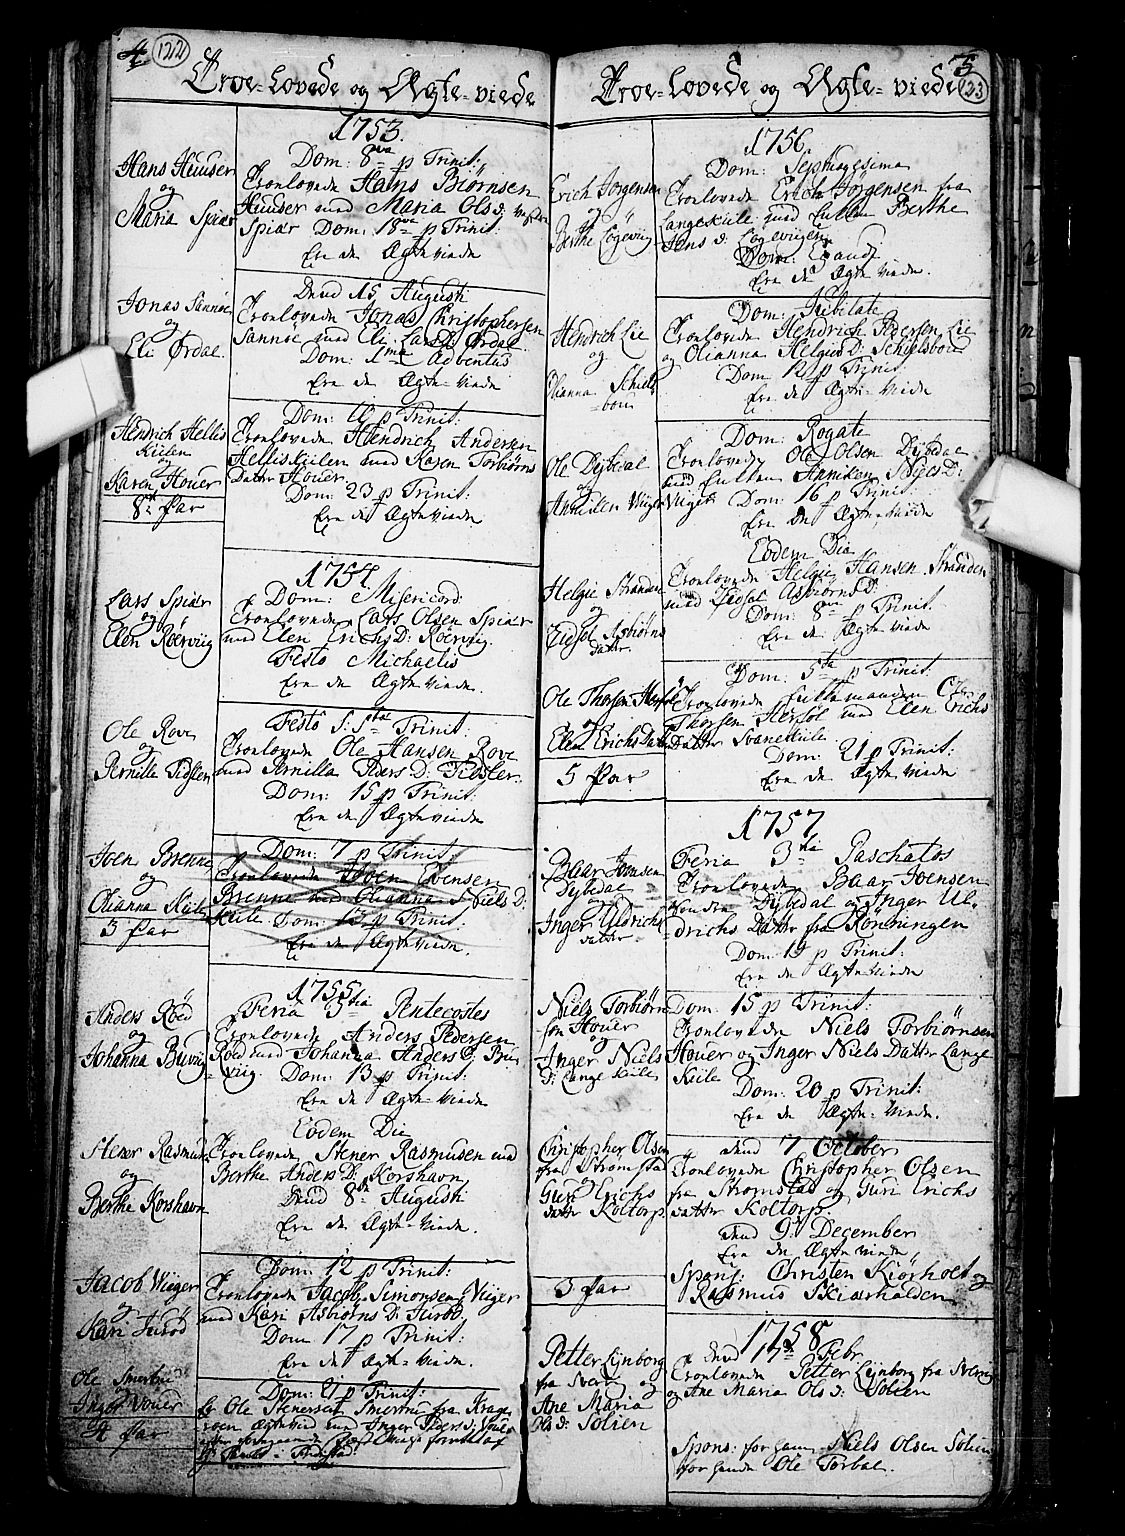 4 122
Troe-Lovede og Ægte-viede
1753.
Hans Huuser
og
Maria Spiær
Dom: 8va p Trinit:
Troulovede Hans Biørnsen
Huuser med Maria Ols D:
Spiær Dom: 18va p Trinit:
Ere de Ægteviede
Jonas Sannøe
og
Eli Ørdal
Dend 15 Augusti
Troulovede Jonas Christophersen
Sannöe med Eli Lars D: Ørdal
Dom: 1ma Adventus
Ere de Ægte-viede
Hendrich Hellis
Kiilen
og
Karen Houer
8te Par
Dom: 11 p Trinit:
Troulovede Hendrich Andersen
Helliskiilen med Karen Torbiørns
Datter Houer
Dom: 23 p Trinit:
Ere de Ægteviede
1754
Lars Spiær
og
Elen Röerviig
Dom: Misericord:
Troulovede Lars Olsen Spiær
med Elen Erichs D: Röerviig
Festo Michaelis
Ere de Ægte viede.
Ole Rove
og
Pernille Tidslen
Festo S: S: tae Trinit:
Troulovede Ole Hansen Rove
med Pernilla Peders D: Tidsler
Dom: 15 p Trinit:
Ere de Ægteviede
Joen Brenne
og
Olianna Kiile
3 Par
Dom: 7 p Trinit:
Troulovede Joen Joensen
Brenne med Olianna Niels D:
Kiile Dom: 13 p Trinit:
Ere de Ægteviede.
1755
Anders Röed
og
Johanna Buviig
Feria 3tia Pentecostes
Troulovede Anders Pedersen
Röed med Johanna Anders D: Bu-
viig. Dom: 13 p Trinit:
Ere de Ægte-viede
Stener Rasmus:
og
Berthe Korshavn
Eodem Die
Troulovede Stener Rasmusen med
Berthe Anders D: Korshavn
Dend 8de Augusti
Ere de Ægte-viede.
Jacob Viiger
og
Kari Juröd
Dom: 12 p Trinit:
Troulovede Jacob Simonsen Viiger
med Kari Asbiørns D: Juröd.
Dom 17 p Trinit:
Ere de Ægte-viede.
Ole
og
Inger Vouer
4 Par
Dom: 21 p Trinit:
Er Ole Stenersen fra Krage-
roen Ægteviid med Inger Peders D: Vouer
5 123
Troe-Lovede og Ægte-viede
1756.
Erich Jørgensen
og
Berthe Lögeviig
Dom: Septuagesima
Troulovede Erich Jörgensen fra
Langekiile med Enken Berthe
Jens D: Lögeviigen
Dom: Exaudi
Ere de Ægte viede.
Hendrich Lie
og
Olianna Schiels
=bou
Dom: Jubilate
Troulovede Hendrich Pedersen Lie
og Olianna Helgies D: Schielsboue
Dom 12 p Trinit:
Ere de Ægte-viede
Ole Dÿbdal
og
Anniken Viiger
Dom: Rogate
Troulovede Ole Olsen Dÿbdal
med Enken Anniken Niels D:
Viiger Dom: 16 p Trinit:
Ere de Ægte-viede
Helgie Stranden
og
Zidsel Asbiørns
datter.
Eodem Die
Troulovede Helgie Hansen Stranden
med Zidsel Asbiørns D:
Dom: 8va p Trinit.
Ere de Ægte viede
Ole Thorsen Hersöl
og
Elen Erichs Datter
5 Par
Dom: 5ta p Trinit:
Troulovede Enkemanden Ole
Thorsen Hersöl med Elen Erichs
Datter Svanekiile
Dom: 21 p Trinit:
Ere de Ægte viede
1757
Baar Joensen
Dybedal
og
Inger Uldrichs
datter
Feria 3tia Paschatos
Troulovede Baar Joensen
Dÿbedal og Inger Ul-
drichs Datter fra Rönningen
Dom 19 p Trinit:
Ere de Ægte-viede
Niels Torbiørn
sen Houer
og
Inger Niels
D: Lange Kiile
Dom: 15 p Trinit:
Troulovede Niels Torbiörnsen
Houer og Inger Niels Datter Lange
Kiile
Dom: 20 p Trinit:
Ere de Ægte-viede.
Christopher Olsen
fra Strömstad
og
Guri Erichs
datter Koltorp.
3 Par
dend 7 October
Troulovede Christopher Olsen
fra Strömstad og Guri Erichs
datter Koltorp.
dend 9de December
Ere de Ægte viede,
Spons: Christen Kiörholt og
Rasmus Skiærhalden
1758
Petter Lÿnborg
fra Sverig og
Ane Maria
Ols D: Solien
dend 17de Febr
Troulovede Petter Lÿnborg fra Sverrig
og Ane Maria Ols D: Solien
Spons: for ham Niels Olsen Solien
for hende Ole Torbal.